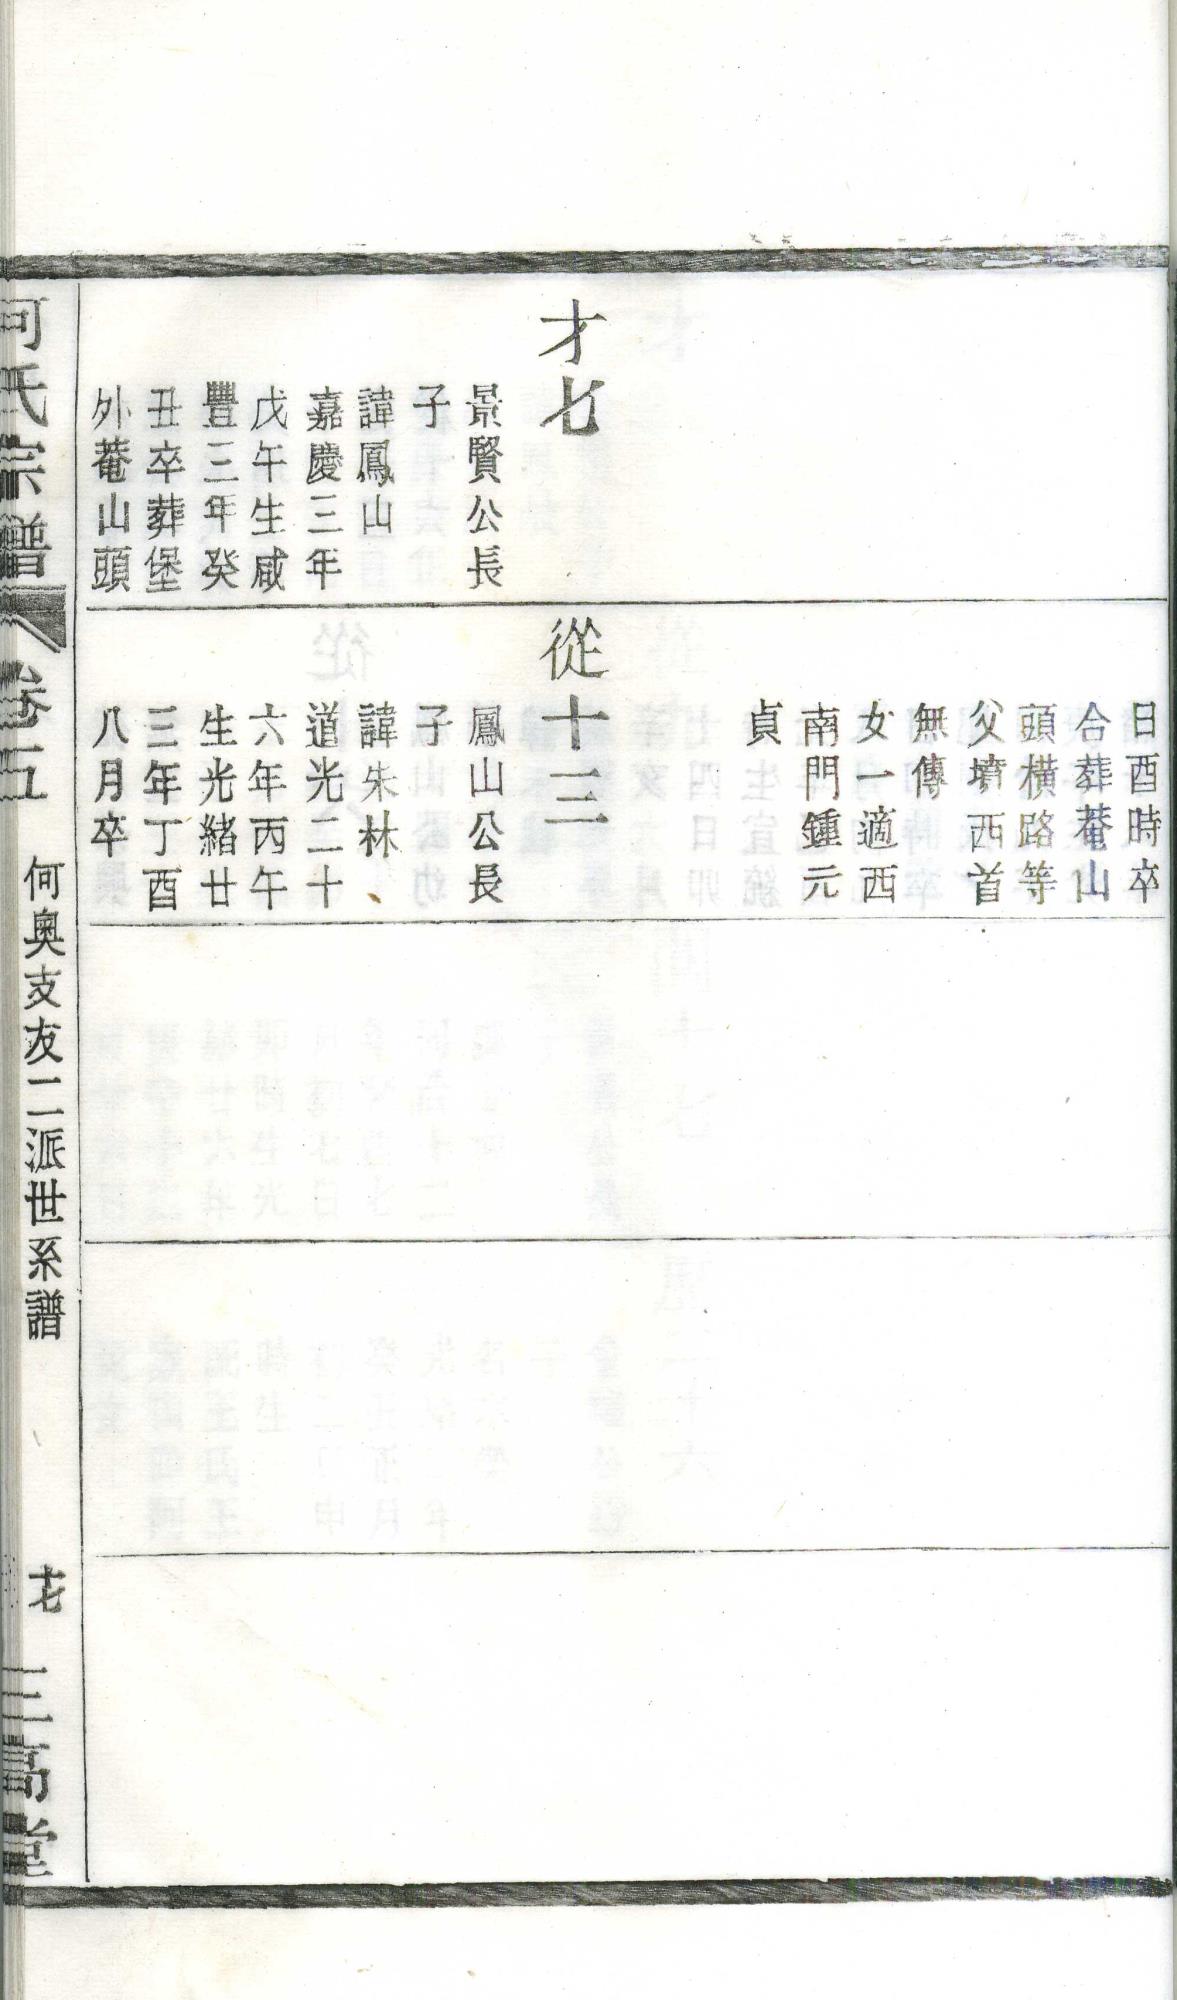 才七
景賢公長
子
諱鳳山
嘉慶三年
戊午生咸
豐三年癸
丑卒葬堡
外菴山頭
日酉時卒
合葬菴山
頭橫路等
父墳西首
無傳
女一適西
南門鍾元
貞
從十三
鳳山公長
子
諱朱林
道光二十
六年丙午
生光緒廿
三年丁酉
八月卒
何氏宗譜
卷五
何奧支友二派世系譜
十七
三高堂